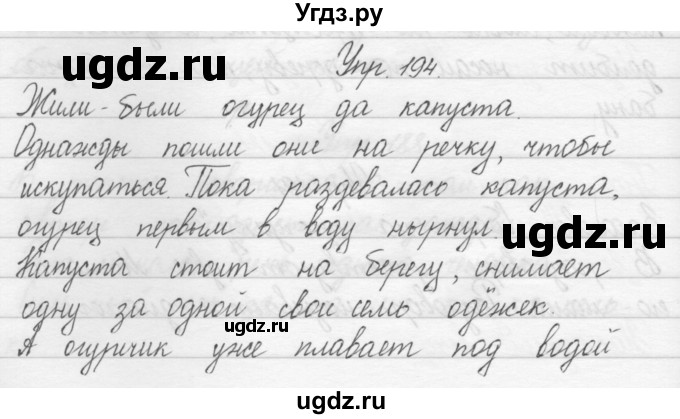 Угдз.ру
ugdz.ru
Упр. 194
Жили-были огурец да капуста.
Однажды пошли они на речку, чтобы
искупаться. Пока раздевалась капуста,
огурец первым в воду нырнул.
ugdz.ru
Капуста стоит на берегу, снимает
одну за одной свои семь одёжек.
ugdz.ru
А огурчик уже плавает под водой
ugdz.ru